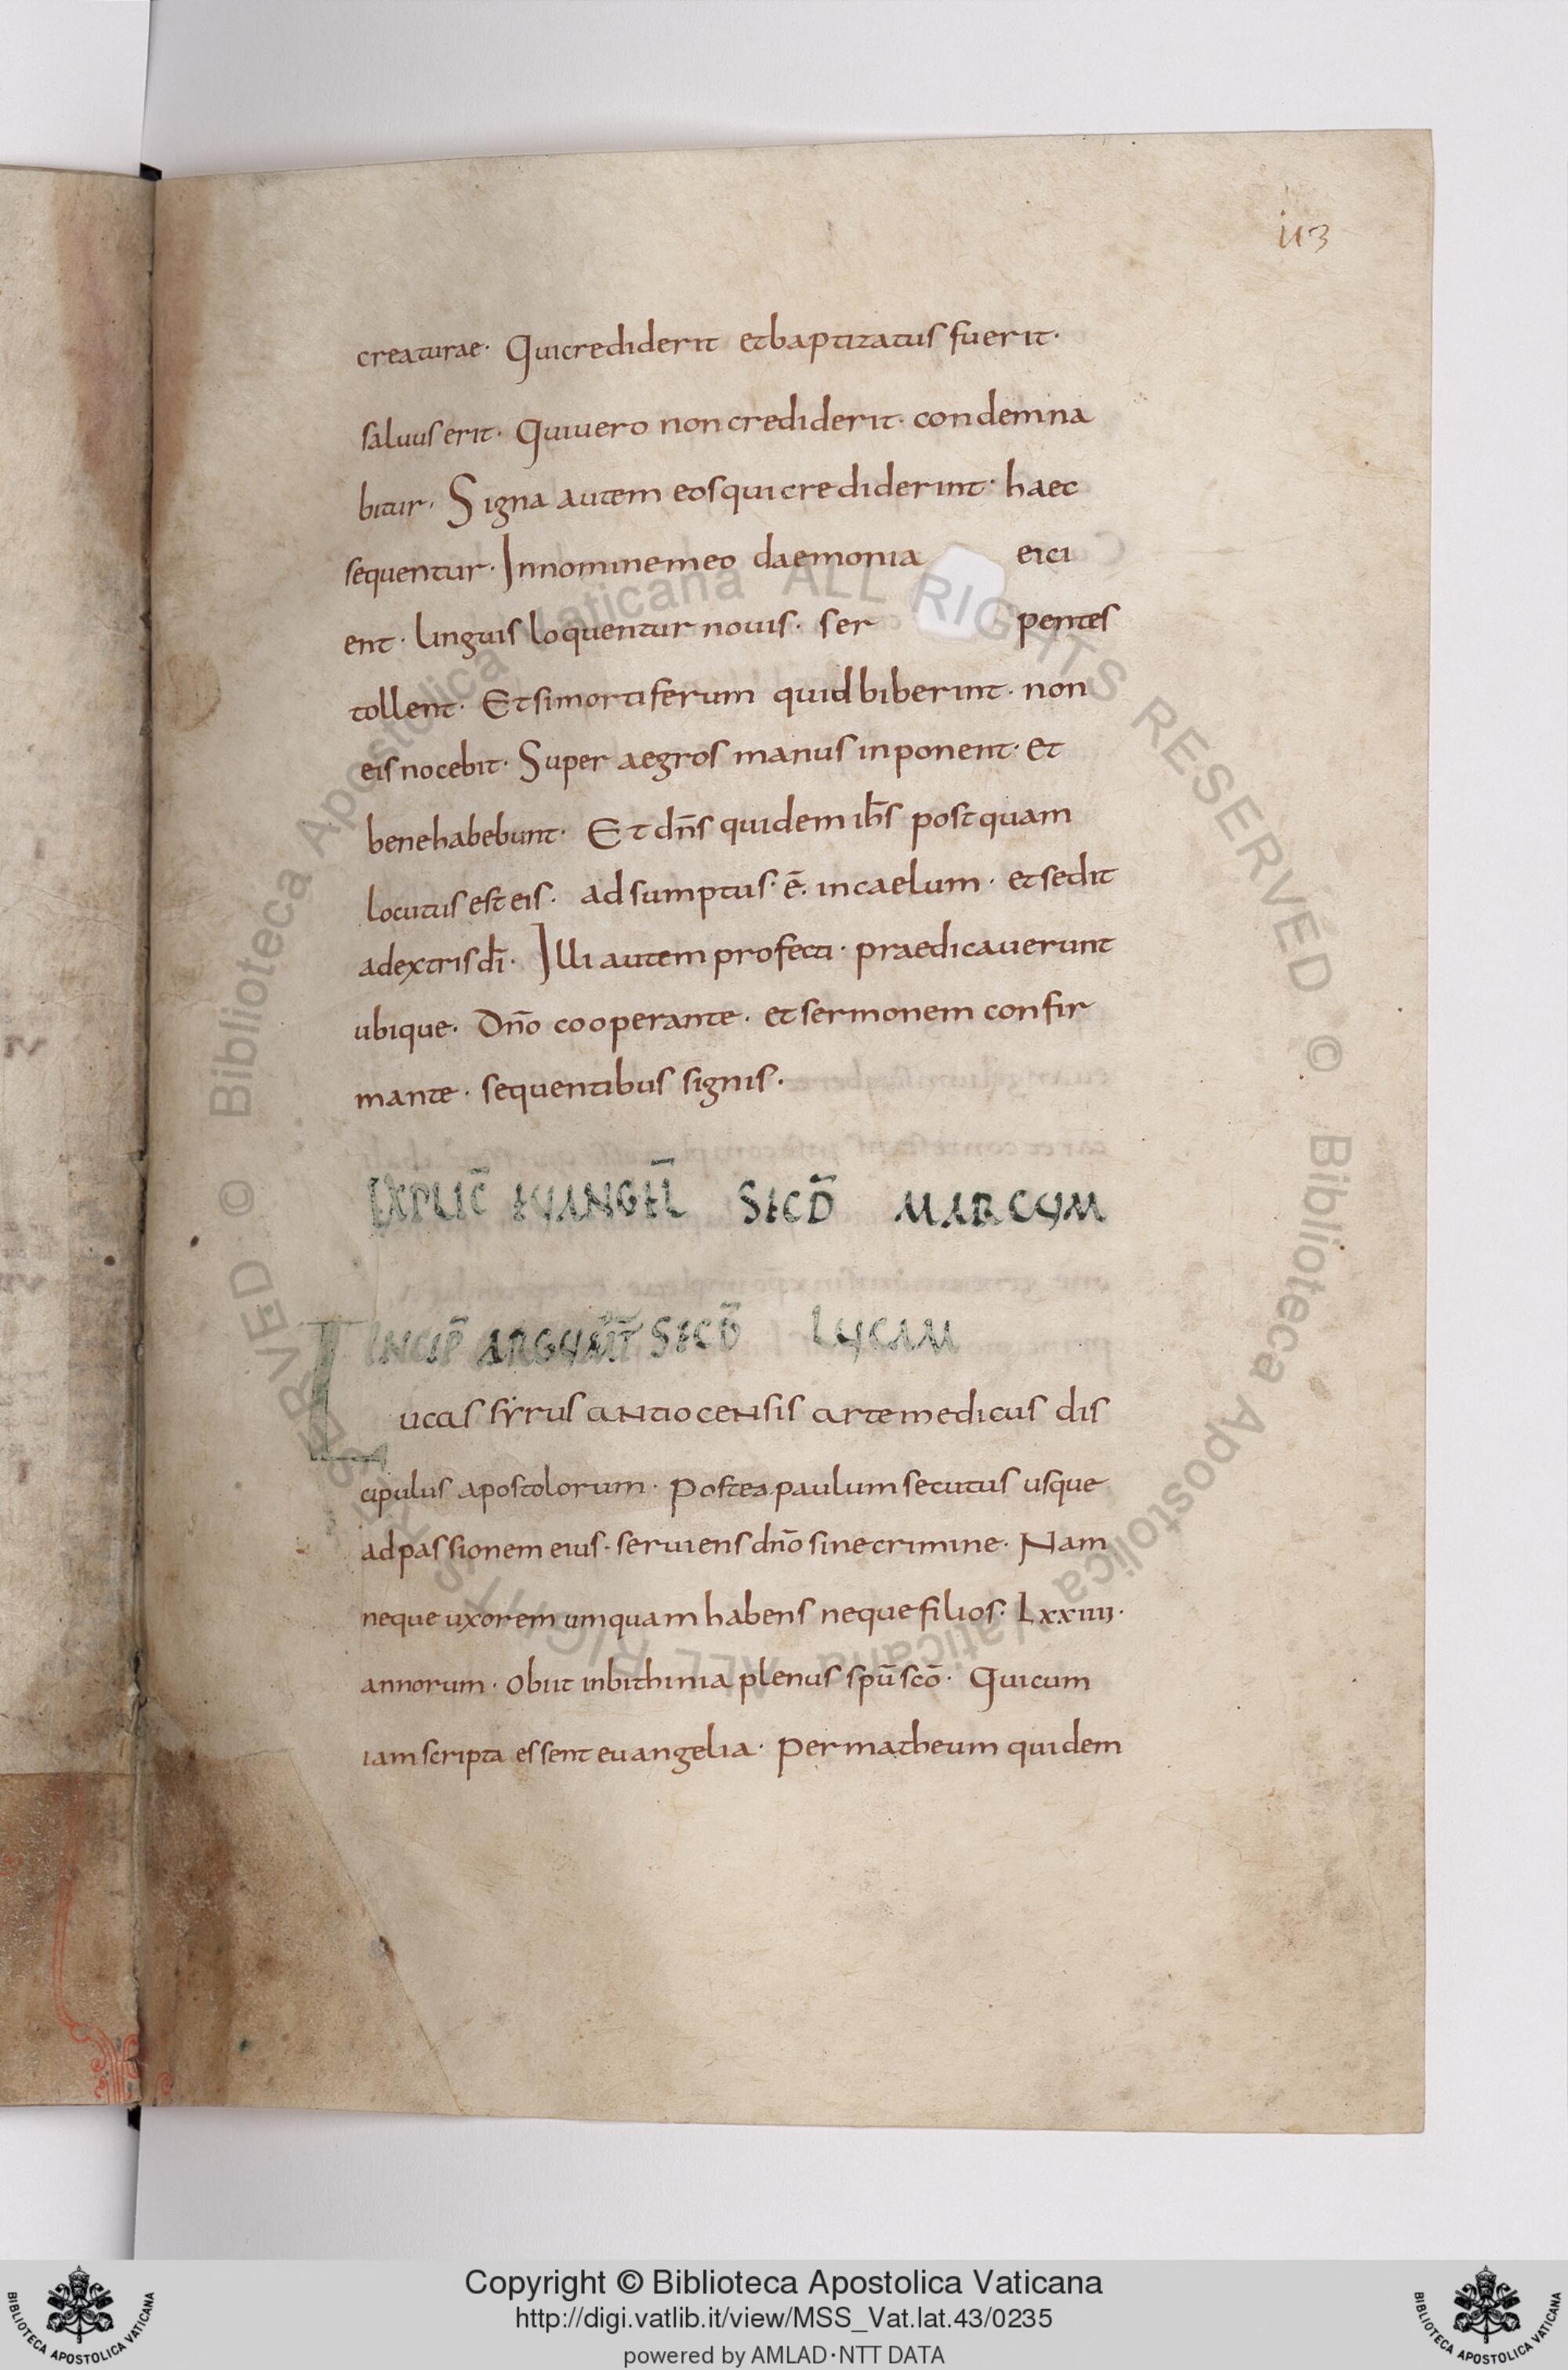 113
creaturae· Quicrediderit etbaptizatus fuerit·
saluus erit· Quiuero non crediderit· condemna
bitur· Signa autem eosqui crediderint· haec
sequentur· Innominemeo daemonia eici
ent· linguis loquentur nouis· ser pentes
tollent· Etsimortiferum quid biberint· non
eis nocebit· Super aegros manus inponent· et
benehabebunt· Et dn̄s quidem ih̄s postquam
locutus est eis· adsumptus· ē· incaelum· etsedit
adextris dī· Illi autem profecti· praedicauerunt
ubique· Dn̄o cooperante· et sermonem confir
mante· sequentibus signis·
EXPLIC̄ EUANGEL̄ SECD̄ MARCUM
INCIP̄ ARGUM̄T̄ SECD̄ LUCAM
Lucas syrus antiocensis arte medicus dis
cipulus apostolorum· Postea paulum secutus usque
adpassionem eius· seruiens dn̄o sine crimine· Nam
neque uxorem umquam habens neque filios· Lxxiiii·
annorum· obiit inbithinia plenus sp̄u sc̄o· Quicum
iam scripta essent euangelia· per matheum quidem
© Biblioteca Apostolica Vaticana ALL RIGHTS RESERVED
© Biblioteca Apostolica Vaticana ALL RIGHTS RESERVED
Copyright © Biblioteca Apostolica Vaticana
http://digi.vatlib.it/view/MSS_Vat.lat.43/0235
powered by AMLAD·NTT DATA
BIBLIOTECA APOSTOLICA VATICANA
BIBLIOTECA APOSTOLICA VATICANA